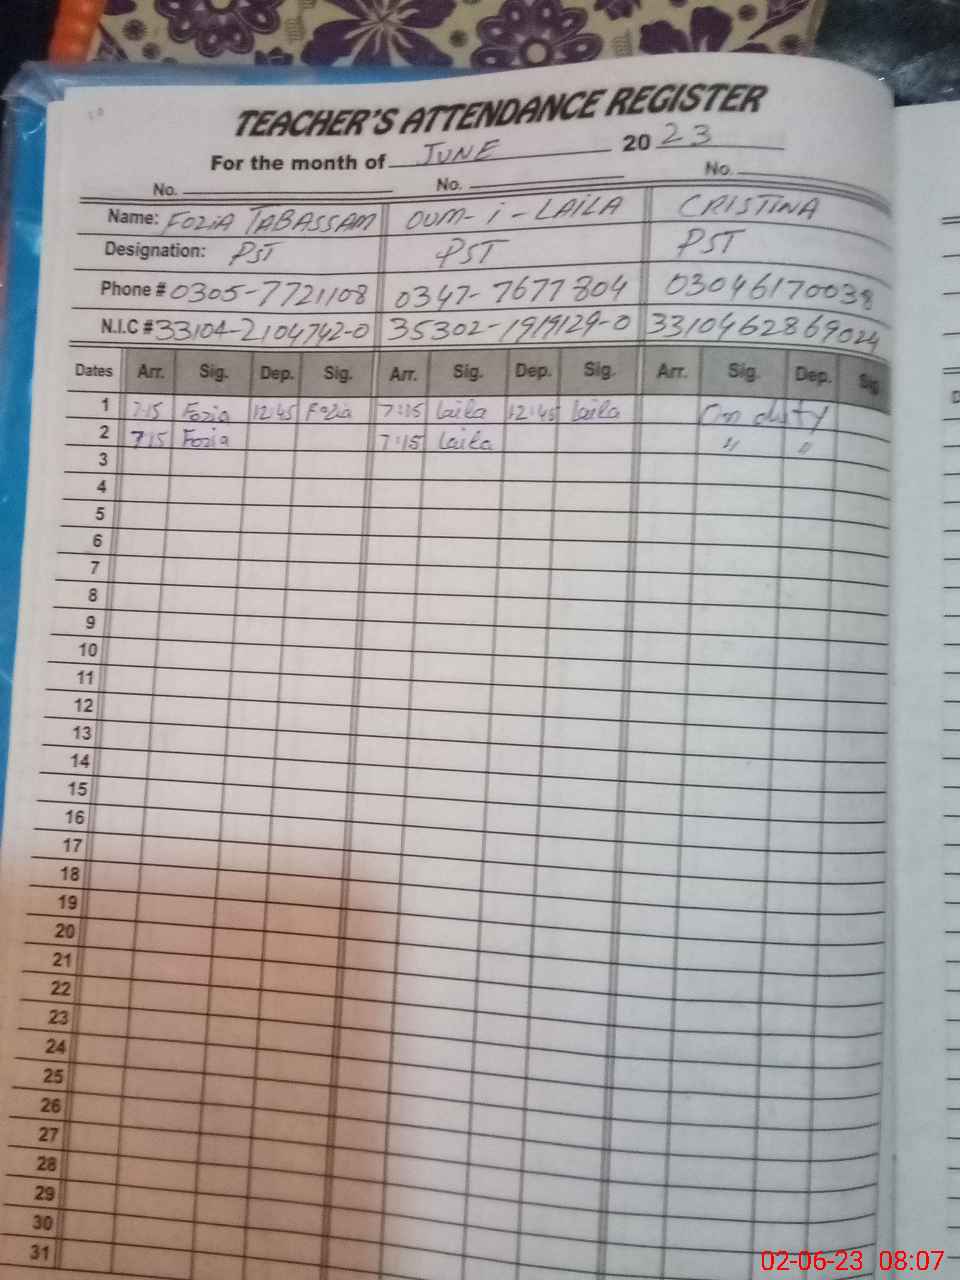 TEACHER'S ATTENDANCE REGISTER
For the month of JUNE 20 23
No. No. No.
Name: FOZIA TABASSAM OUM-i-LAILA CRISTINA
Designation: PST PST PST
Phone # 0305-7721108 0347-7677804 03046170038
N.I.C # 33104-2104742-0 35302-1919129-0 3310462869024
Dates Arr. Sig. Dep. Sig. Arr. Sig. Dep. Sig. Arr. Sig. Dep. Sig
1 7:15 Fozia 12:45 Fozia 7:15 Laila 12:45 Laila On duty
2 7:15 Fozia 7:15 Laila " "
3
4
5
6
7
8
9
10
11
12
13
14
15
16
17
18
19
20
21
22
23
24
25
26
27
28
29
30
31
02-06-23 08:07